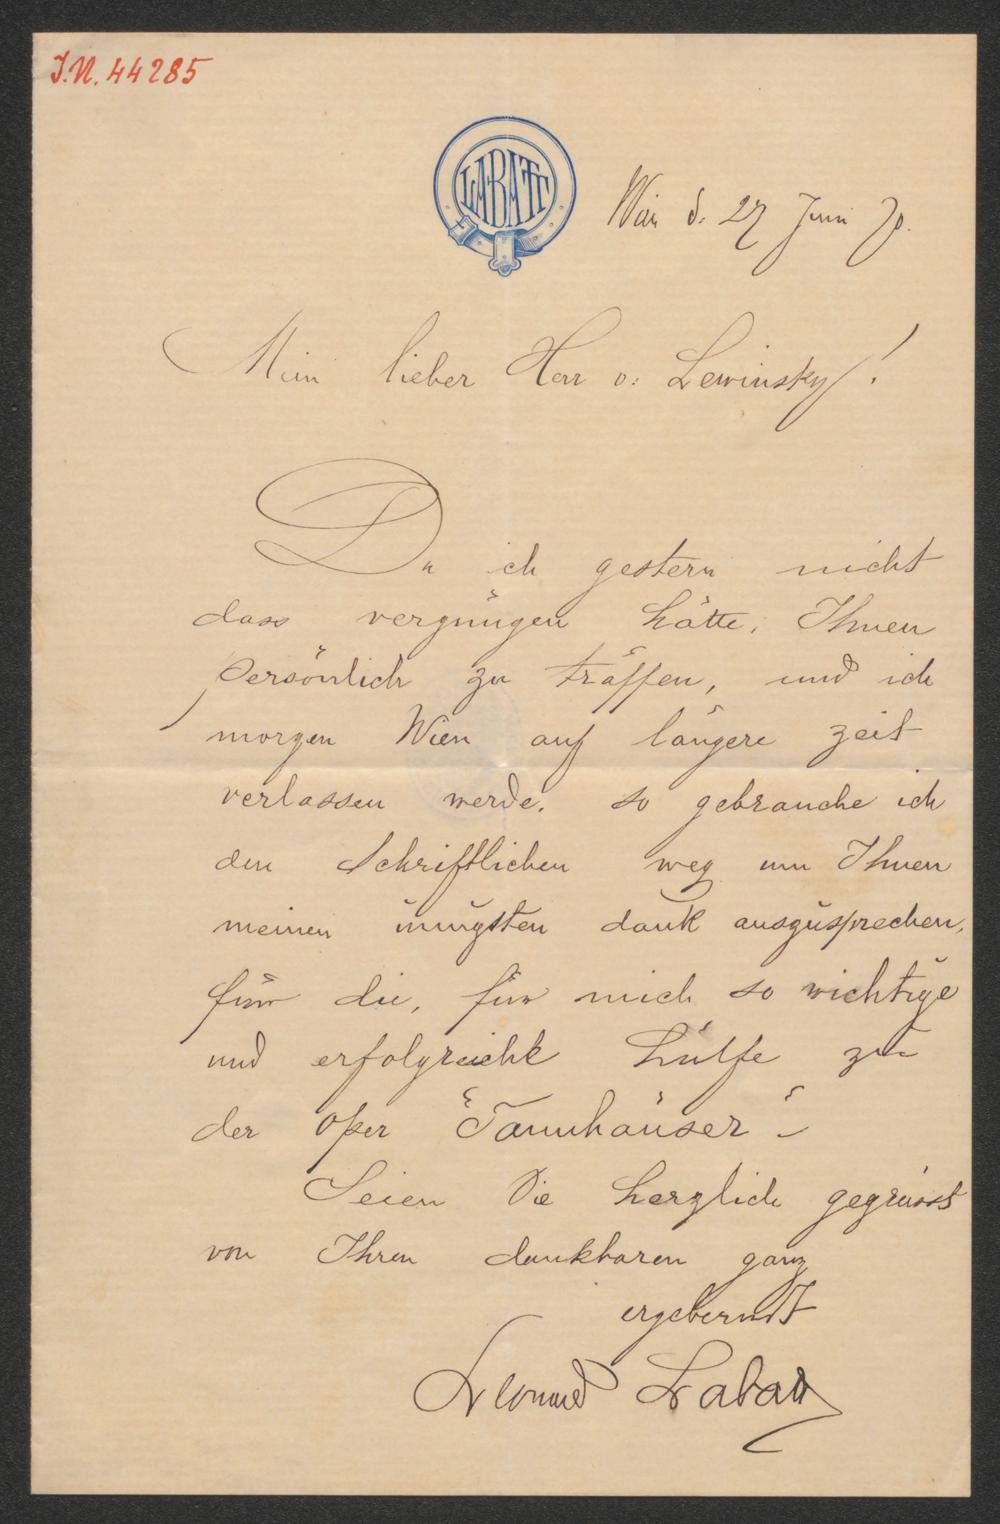 I.N. 44285
LABATT
Wien d. 27 Juni 70.
Mein lieber Herr v: Lewinsky!
Da ich gestern nicht
dass vergnügen hätte, Ihnen
persönlich zu träffen, und ich
morgen Wien auf längere zeit
verlassen werde. so gebrauche ich
den Schriftlichen weg um Ihnen
meinen innigsten dank auszusprechen,
für die, für mich so wichtige
und erfolgreiche hülfe zu
der Oper "Tannhäuser"
Seien Sie herzlich gegrüsst
von Ihren dankbaren ganz
ergebenst
Leonard Labatt